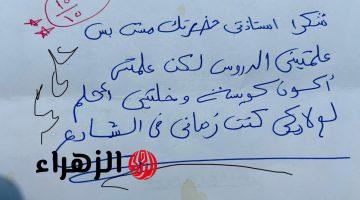 ١٠
١٠
شكرا استاذتى حضرتك مش بس
علمتينى الدروس لكن علمتنى
أكون كويسة وخلتنى أحلم
لولاكى كنت زمانى فى الشارع
الزهراء